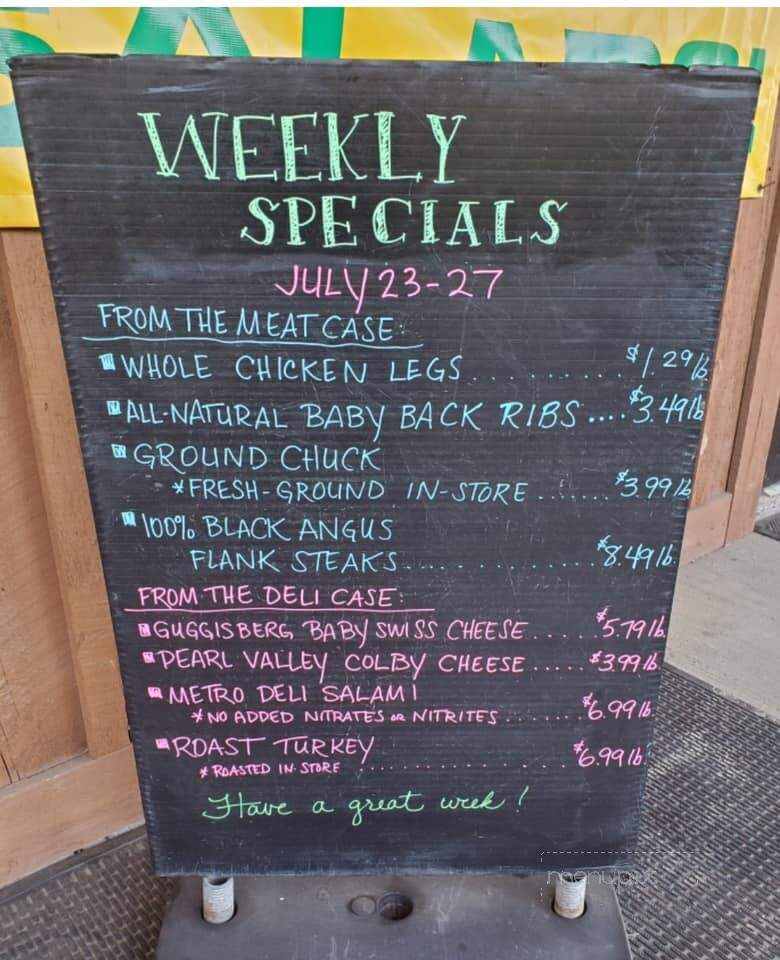 WEEKLY
SPECIALS
JULY 23-27
FROM THE MEAT CASE:
WHOLE CHICKEN LEGS.......... $1.29 lb
ALL-NATURAL BABY BACK RIBS.... $3.49 lb
GROUND CHUCK
*FRESH-GROUND IN-STORE....... $3.99 lb
100% BLACK ANGUS
FLANK STEAKS.............. $8.49 lb.
FROM THE DELI CASE:
GUGGISBERG BABY SWISS CHEESE..... $5.79 lb
PEARL VALLEY COLBY CHEESE..... $3.99 lb.
METRO DELI SALAMI
*NO ADDED NITRATES OR NITRITES....... $6.99 lb.
ROAST TURKEY
*ROASTED IN-STORE.............. $6.99 lb
Have a great week!
menupix